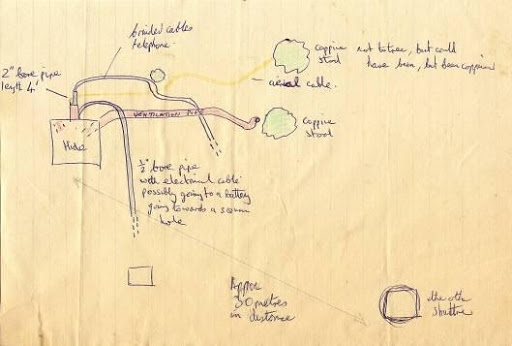 braided cables
telephone.
2" bore pipe
length 4'
coppice
stool
not batten, but could
have been, but been coppiced
aerial cable.
VENTILATION PIPE
Hide
coppice
stool
½" bore pipe
with electrical cable
possibly going to a battery
going towards a square
hole
Approx
30 metres
in distance
the other
structure